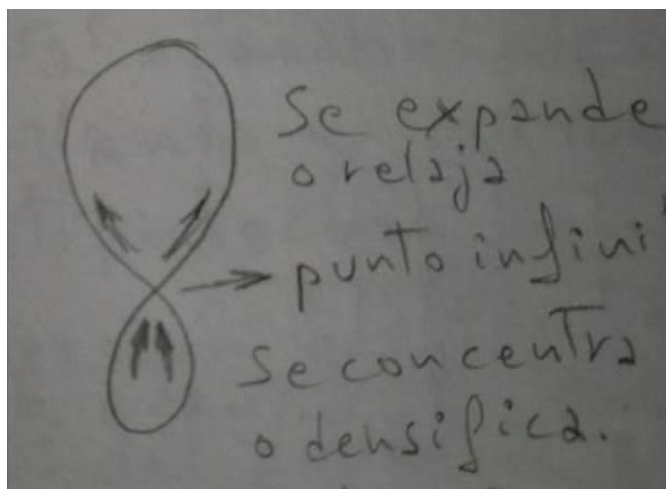 Se expande
o relaja
punto infini
Se concentra
o densifica.